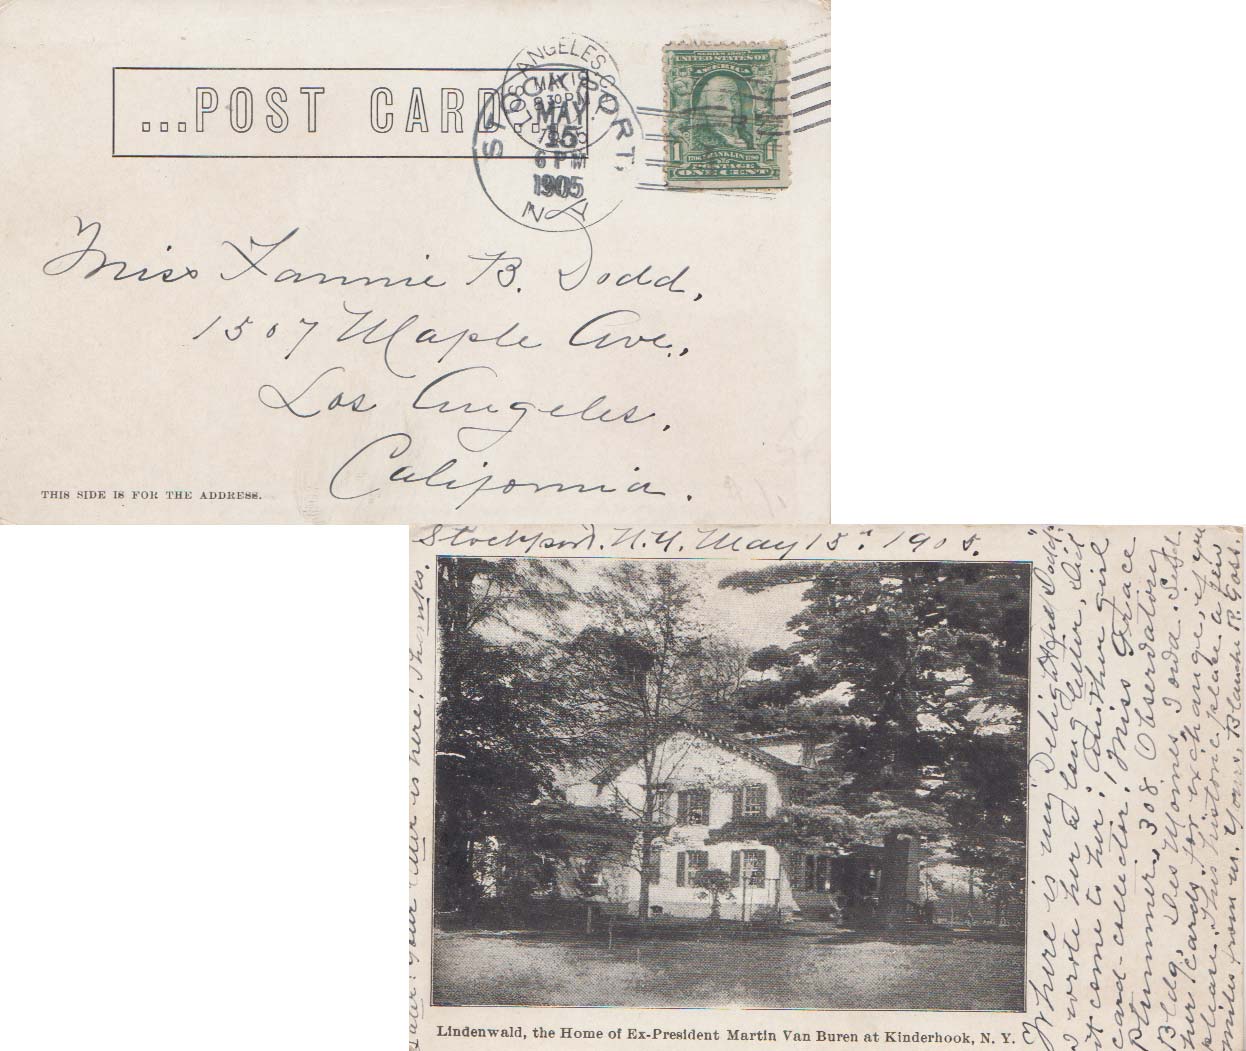 ...POST CARD...
LOS ANGELES, CAL.
MAY
8 30 PM
STOCKPORT
MAY
15
6 PM
1905
N.Y.
SERIES 1902
UNITED STATES OF
AMERICA
1 FRANKLIN 1
POSTAGE
ONE CENT
Miss Fannie B. Dodd,
1507 Maple Ave.,
Los Angeles,
California.
THIS SIDE IS FOR THE ADDRESS.
Stockport. N.Y. May 15" 1905.
Where is my "Delightful Dodd."
I wrote her a long letter, Did
it come to her? Another girl
card-collector, Miss Grace
Plummer, 308 Observatory
Bldg., Des Moines, Ioda. Send
her cards for exchange, if you
please. This historic place a few
miles from us. Yours Blanche R. Gast.
Later. Your letter is here! Thanks.
Lindenwald, the Home of Ex-President Martin Van Buren at Kinderhook, N. Y.